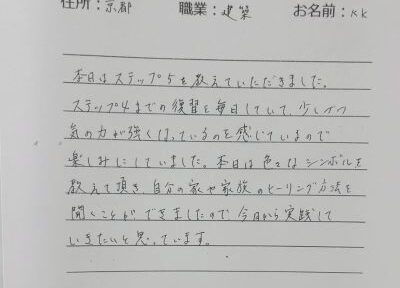 住所：京都 職業：建築 お名前：KK
本日はステップ5を教えていただきました。
ステップ4までの復習を毎日していて、少しづつ
気の力が強くなっているのを感じているので
楽しみにしていました。本日は色々なシンボルを
教えて頂き、自分の家や家族のヒーリング方法を
聞くことができましたので今日から実践して
いきたいと思っています。